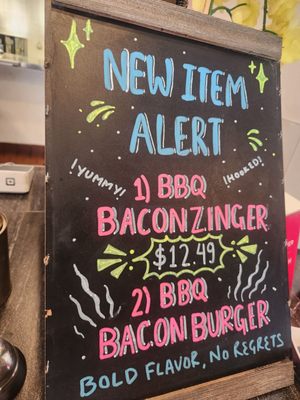 NEW ITEM
ALERT
¡YUMMY!
¡HOOKED!
1) BBQ
BACON ZINGER
$12.49
2) BBQ
BACON BURGER
BOLD FLAVOR, NO REGRETS